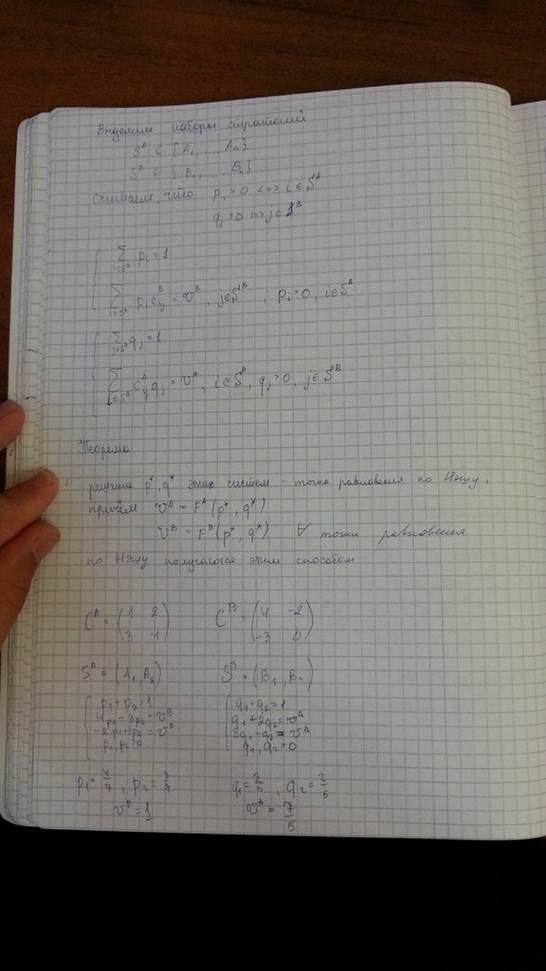 Выделим наборы стратегий
S^A ⊂ {A₁, ..., Aₘ}
S^B ⊂ {B₁, ..., Bₙ}
Считаем, что pᵢ > 0 <=> i ∈ S^A
qⱼ > 0 <=> j ∈ S^B
∑_{i∈S^A} pᵢ = 1
∑_{i∈S^A} pᵢ c_{ij}^B = v^B, j ∈ S^B ; pᵢ > 0, i ∈ S^A
∑_{j∈S^B} qⱼ = 1
∑_{j∈S^B} c_{ij}^A qⱼ = v^A, i ∈ S^A, qⱼ > 0, j ∈ S^B
Теорема
решение p*, q* этих систем - точка равновесия по Нэшу,
причём v^A = F^A(p*, q*)
v^B = F^B(p*, q*) ∀ точки равновесия
по Нэшу получаются этим способом
C^A = (1 2 C^B = (4 -2
3 -1) -3 0)
S^A = (A₁, A₂) S^B = (B₁, B₂)
p₁ + p₂ = 1 q₁ + q₂ = 1
4p₁ - 3p₂ = v^B q₁ + 2q₂ = v^A
= v^B 3q₁ - q₂ = v^A
p₁, p₂ > 0 q₁, q₂ > 0
, p₂ = q₁ = 3/5, q₂ = 2/5
= 1 v^A = 7/5